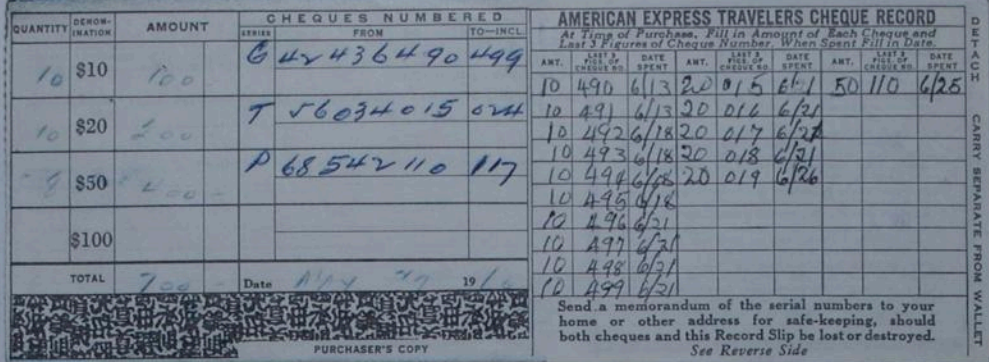 QUANTITY DENOM-INATION AMOUNT SERIES CHEQUES NUMBERED FROM TO—INCL
10 $10 100 G 42 436 490 499
10 $20 200 T 56034015 024
$50 400 P 68542110 117
$100
TOTAL 700 Date 19
PURCHASER'S COPY
AMERICAN EXPRESS TRAVELERS CHEQUE RECORD
At Time of Purchase, Fill in Amount of Each Cheque and
Last 3 Figures of Cheque Number. When Spent Fill in Date.
AMT. LAST 3 FIGS. OF CHEQUE NO. DATE SPENT AMT. LAST 3 FIGS. OF CHEQUE NO. DATE SPENT AMT. LAST 3 FIGS. OF CHEQUE NO. DATE SPENT
10 490 6/13 20 015 6/21 50 110 6/25
10 491 6/13 20 016 6/21
10 492 6/18 20 017 6/21
10 493 6/18 20 018 6/21
10 494 6/18 20 019 6/26
10 495 6/18
10 496 6/21
10 497 6/21
10 498 6/21
10 499 6/21
Send a memorandum of the serial numbers to your
home or other address for safe-keeping, should
both cheques and this Record Slip be lost or destroyed.
See Reverse Side
DETACH CARRY SEPARATE FROM WALLET